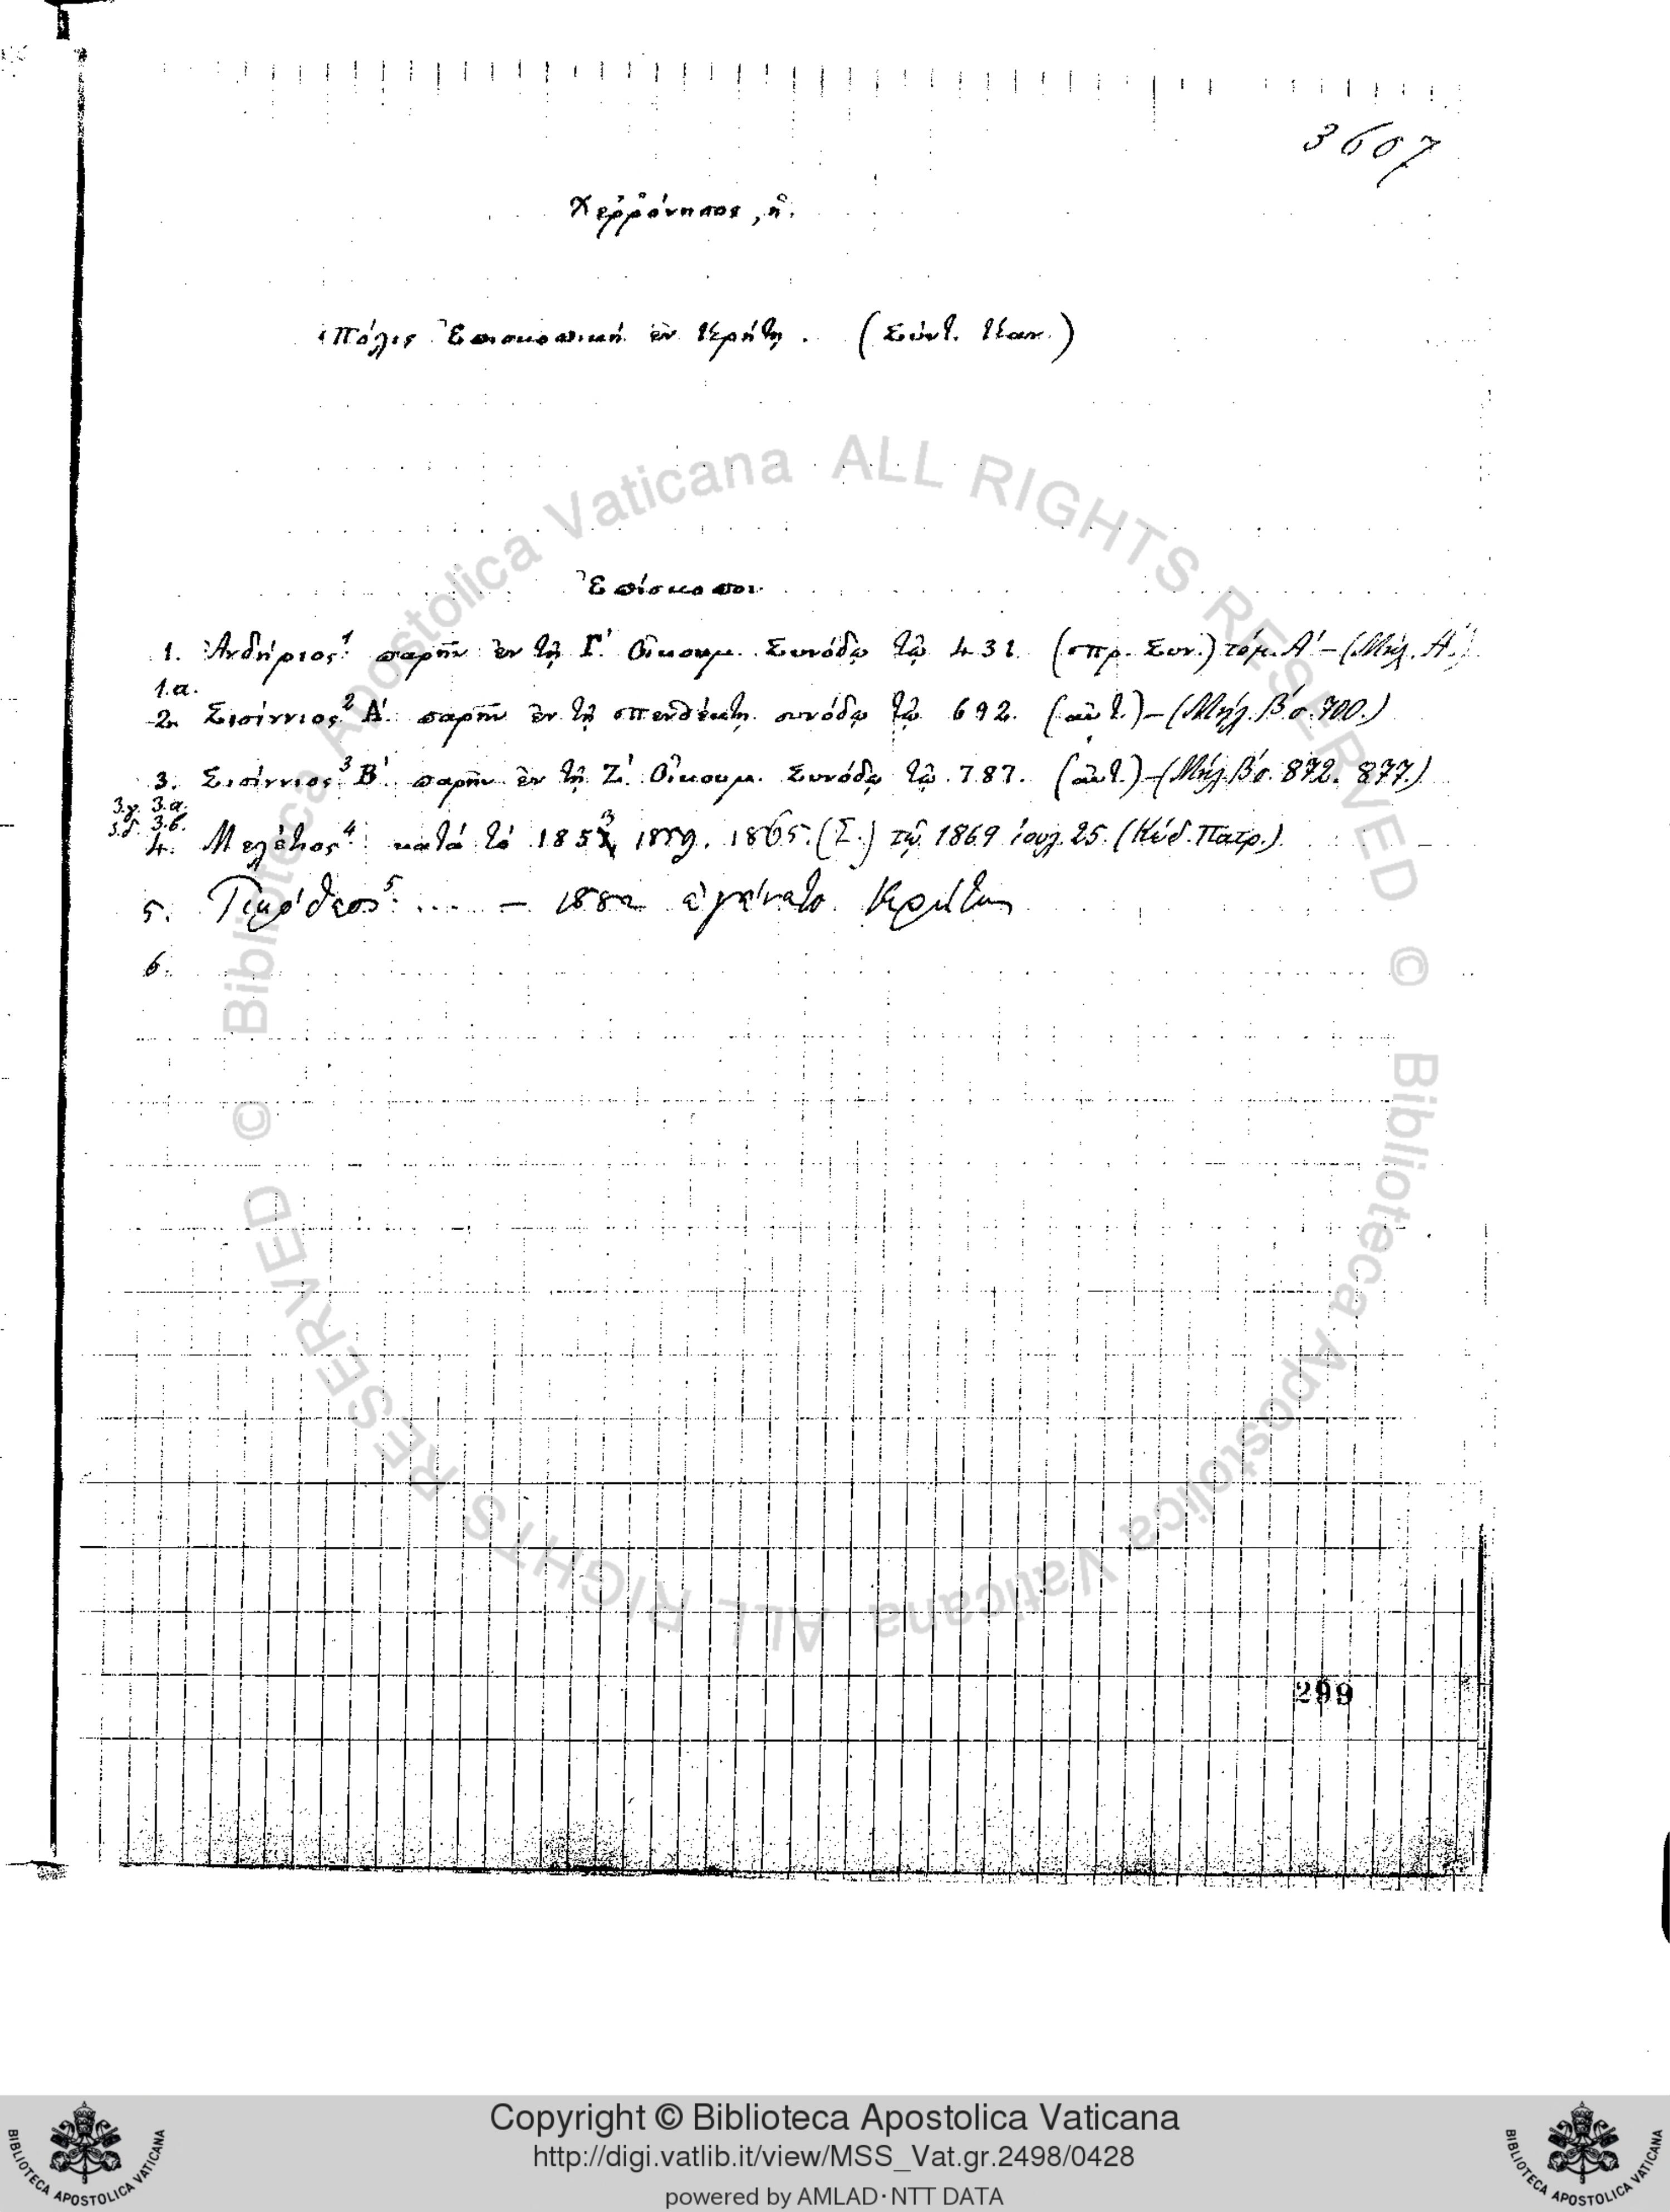 3607
Χερρόνησος, ἡ.
Πόλις Ἐπισκοπικὴ ἐν Κρήτῃ. (Σύντ. Καν.)
Ἐπίσκοποι
1. Ἀνδήριος¹ παρῆν ἐν τῇ Γ΄ Οἰκουμ. Συνόδῳ τῷ 431. (πρ. Συν.) τόμ. Α΄ – (Μήλ. Α΄.)
1.α.
2. Σισίννιος² Α΄. παρῆν ἐν τῇ πενθέκτῃ συνόδῳ τῷ 692. (αὐτ.) – (Μήλ. Β΄ σ. 700.)
3. Σισίννιος³ Β΄. παρῆν ἐν τῇ Ζ΄ Οἰκουμ. Συνόδῳ τῷ 787. (αὐτ.) – (Μήλ. Β΄ σ. 872. 877.)
3.γ. 3.α.
3.δ. 3.β.
4. Μελέτιος⁴ κατὰ τὸ 1853, 1859. 1865. (Σ.) τῷ 1869 ἰουλ. 25. (Κώδ. Πατρ.)
5. Τιμόθεος⁵ .... – 1882 ἐγένετο Κρήτης
6.
299
© Biblioteca Apostolica Vaticana ALL RIGHTS RESERVED
© Biblioteca Apostolica Vaticana ALL RIGHTS RESERVED
Copyright © Biblioteca Apostolica Vaticana
http://digi.vatlib.it/view/MSS_Vat.gr.2498/0428
powered by AMLAD·NTT DATA
BIBLIOTECA APOSTOLICA VATICANA
BIBLIOTECA APOSTOLICA VATICANA